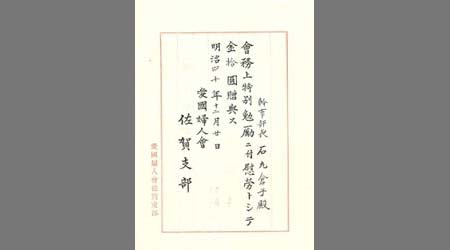 幹事部長 石丸倉子殿
會務上特別勉励ニ付慰勞トシテ
金拾圓贈與ス
明治四十年十二月廿日
愛國婦人會
佐賀支部
愛國婦人會佐賀支部